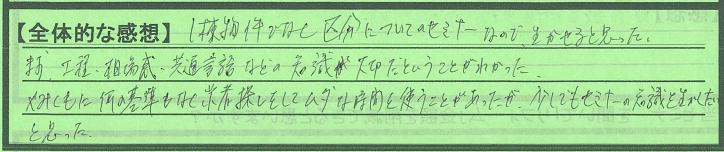 【全体的な感想】 1棟物件でなく区分についてのセミナーなので、生かせると思った。
工程・相場感・共通言語などの知識が大切だということがわかった。
に何の基準もなく業者探しをしてムダな時間を使うことがあったが、少しでもセミナーの知識を生かしたい
と思った。